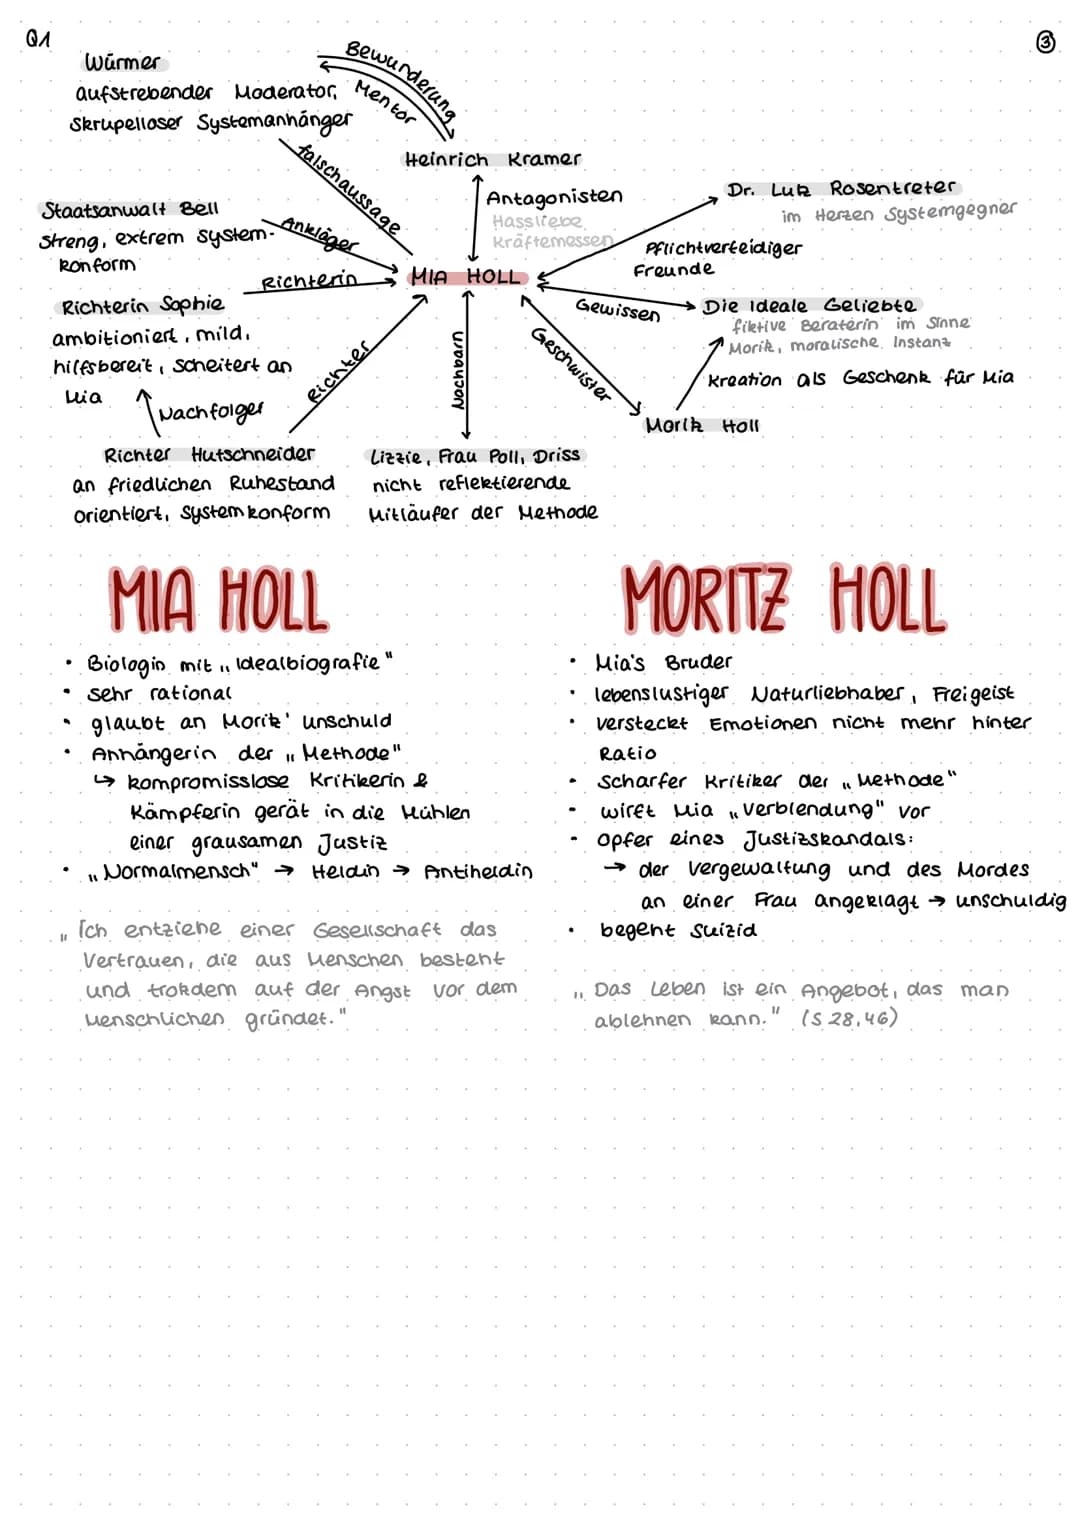 Q1
3
Würmer
aufstrebender Moderator,
Skrupelloser Systemanhänger
Bewunderung
Mentor
Heinrich Kramer
falschaussage
Antagonisten
Hassliebe,
Kräftemessen
Dr. Lutz Rosentreter
im Herzen Systemgegner
Pflichtverteidiger
Freunde
Staatsanwalt Bell
streng, extrem system-
konform
Ankläger
Richterin
MIA HOLL
Gewissen
Die Ideale Geliebte
fiktive Beraterin im Sinne
Moritz, moralische Instanz
Kreation als Geschenk für Mia
Richterin Sophie
ambitioniert, mild,
hilfsbereit, scheitert an
Mia
Nachfolger
Richter
Nachbarn
Geschwister
Moritz Holl
Richter Hutschneider
an friedlichen Ruhestand
orientiert, systemkonform
Lizzie, Frau Poll, Driss
nicht reflektierende
Mitläufer der Methode
MIA HOLL
• Biologin mit „Idealbiografie"
• sehr rational
• glaubt an Moritz' unschuld
• Anhängerin der „Methode"
↳ kompromisslose Kritikerin &
Kämpferin gerät in die Mühlen
einer grausamen Justiz
• „Normalmensch" → Heldin → Antiheldin
„Ich entziehe einer Gesellschaft das
Vertrauen, die aus Menschen besteht
und trotzdem auf der Angst vor dem
Menschlichen gründet."
MORITZ HOLL
• Mia's Bruder
• lebenslustiger Naturliebhaber, Freigeist
• versteckt Emotionen nicht mehr hinter
Ratio
• scharfer Kritiker der „Methode"
• wirft Mia „Verblendung" vor
• Opfer eines Justizskandals:
→ der Vergewaltung und des Mordes
an einer Frau angeklagt → unschuldig
• begeht Suizid
„Das Leben ist ein Angebot, das man
ablehnen kann." (S 28,46)